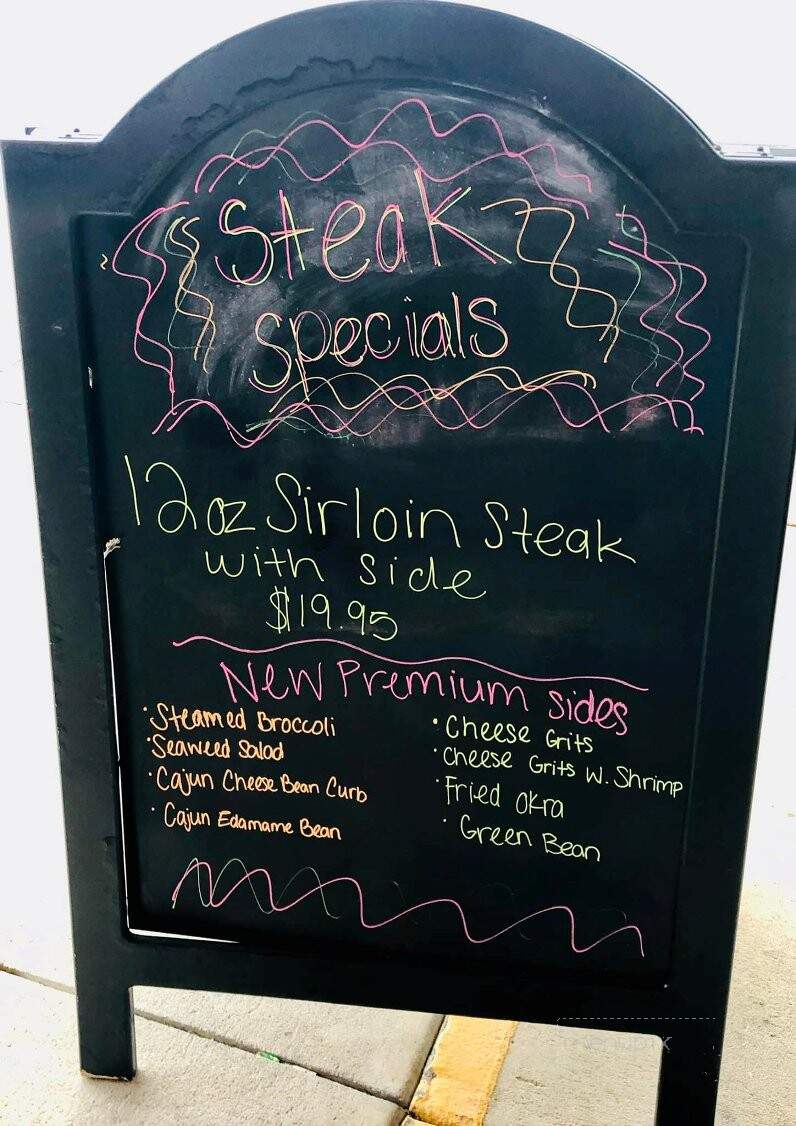 Steak
Specials
12oz Sirloin Steak
with side
$19.95
New Premium sides
· Steamed Broccoli
· Seaweed Salad
· Cajun Cheese Bean Curb
· Cajun Edamame Bean
· Cheese Grits
· Cheese Grits W. Shrimp
· Fried Okra
· Green Bean